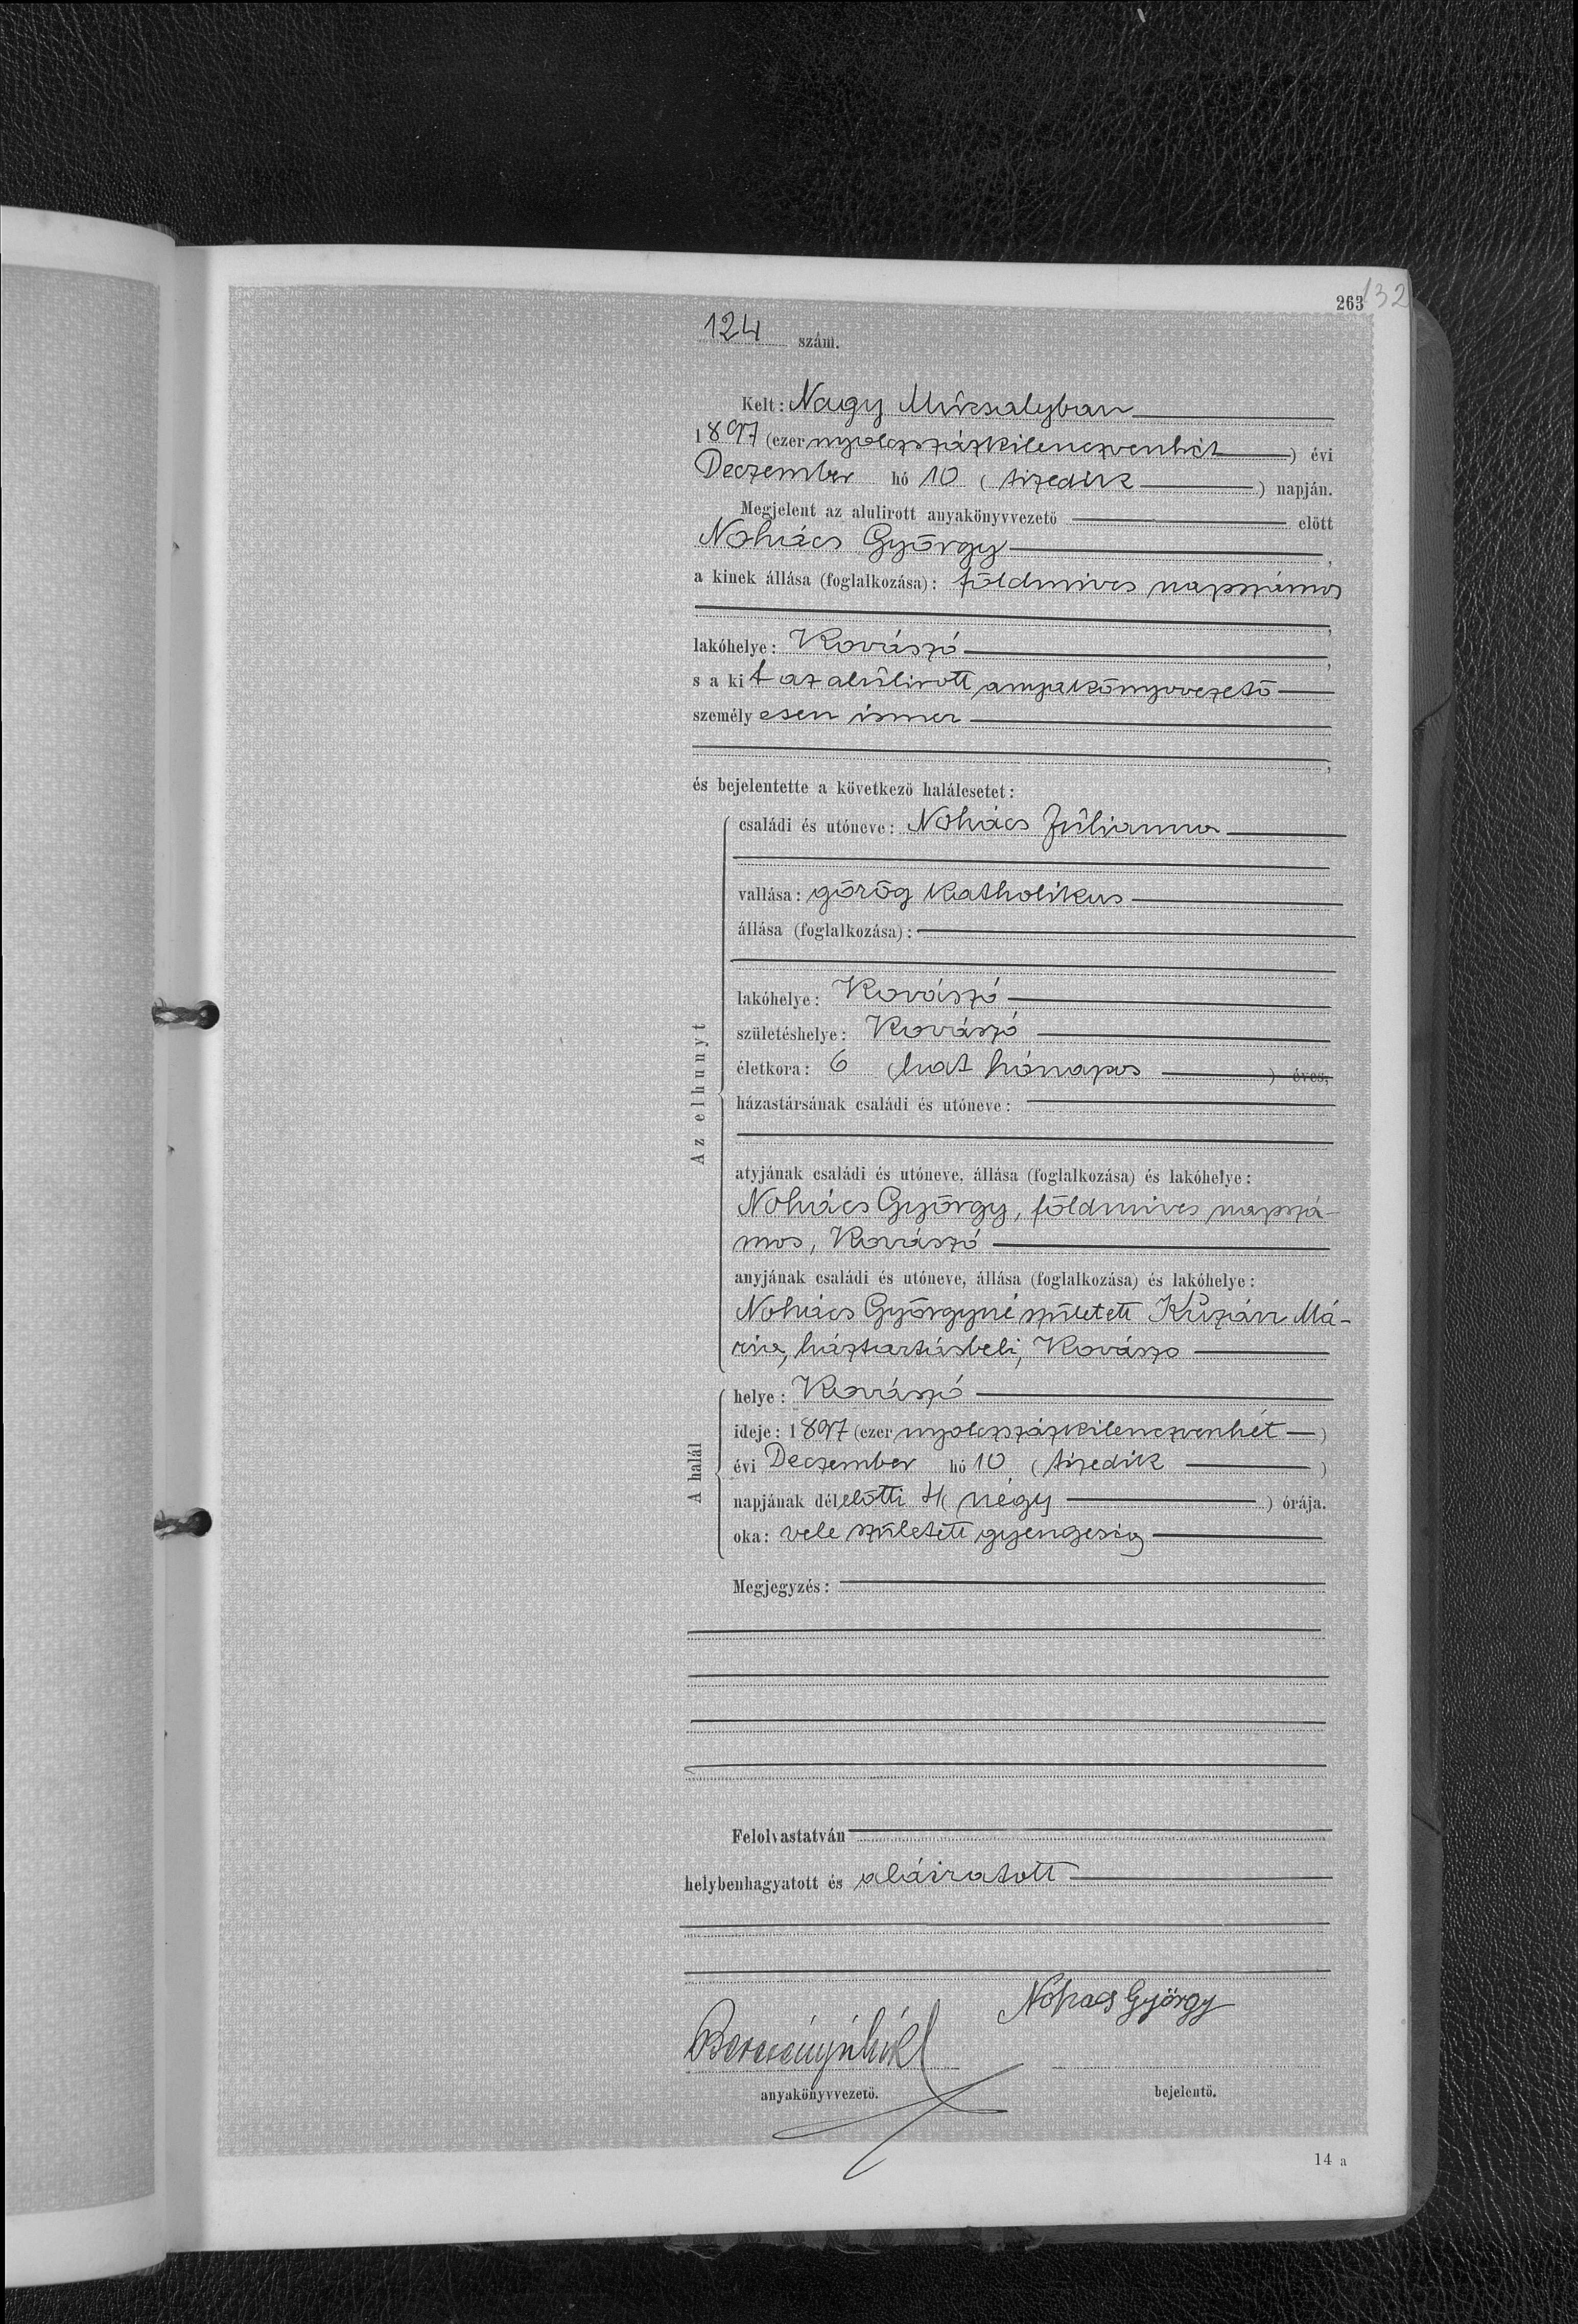 263
132
124 szám.
Kelt: Nagy Múzsalyban
1897 (ezer nyolczszázkilenczvenhét) évi
Deczember hó 10 (tizedik) napján.
Megjelent az alulirott anyakönyvvezető előtt
Nohács György,
a kinek állása (foglalkozása): földmives napszámos
,
lakóhelye: Kovászó,
s a kit az alúlirott anyakönyvvezető
személyesen ismer
,
és bejelentette a következő halálesetet:
Az elhunyt
családi és utóneve: Nohács Júlianna
vallása: görög katholikus
állása (foglalkozása):
lakóhelye: Kovászó
születéshelye: Kovászó
életkora: 6 (hat hónapos) éves,
házastársának családi és utóneve:
atyjának családi és utóneve, állása (foglalkozása) és lakóhelye:
Nohács György, földmives napszá-
mos, Kovászó
anyjának családi és utóneve, állása (foglalkozása) és lakóhelye:
Nohács Györgyné született Kuzán Má-
ria, háztartásbeli, Kovászo
A halál
helye: Kovászó
ideje: 1897 (ezer nyolczszázkilenczvenhét)
évi Deczember hó 10 (tizedik)
napjának délelőtti 4 (négy) órája.
oka: vele született gyengeség
Megjegyzés:
Felolvastatván
helybenhagyatott és aláiratott
Nóhacs György
anyakönyvvezető.
bejelentő.
14 a